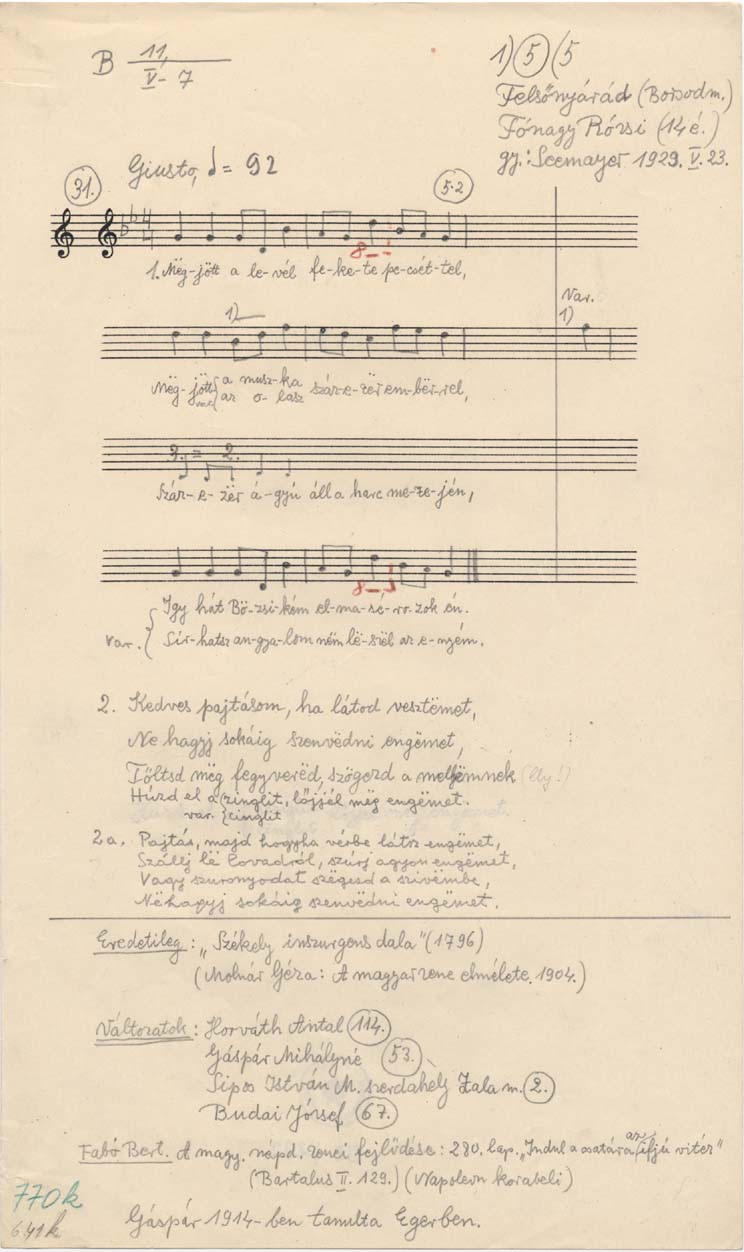 B 11, / V - 7
1) 5 (5
Felsőnyárád (Borsodm.)
Fónagy Rózsi (14 é.)
gy.: Seemayer 1929. V. 23.
Giusto, = 92
31.
5·2
8
1. Mëg-jött a le-vél fe-ke-te pe-csét-tel,
1)
Var.
1)
Mëg-jött a musz-ka száz-e-zër em-bër-rel,
var. az o-lasz
2. = 2.
Száz-e-zër á-gyú áll a harc me-ze-jén,
8
Igy hát Bö-zsi-kém el-ma-sé-ro-zok én.
var. Sír-hatsz an-gya-lom nëm lë-szël az e-nyém.
2. Kedves pajtásom, ha látod vesztëmet,
Ne hagyj sokáig szenvëdni engëmet,
Töltsd mëg fegyverëd, szögezd a mellyëmnek (lly!)
Húzd el a zinglit, lőjjél mëg engëmet.
var. cinglit
2a. Pajtás, majd hogyha vérbe látsz engëmet,
Szállj lë lovadról, szúrj agyon engëmet,
Vagy szuronyodat szëgezd a szivëmbe,
Në hagyj sokáig szenvëdni engëmet.
Eredetileg: „Székely inszurgens dala" (1796)
(Molnár Géza: A magyar zene elmélete. 1904.)
Változatok: Horváth Antal 114.
Gáspár Mihályné 53.
Sipos István M. szerdahely Zala m. 2.
Budai József 67.
Fabó Bert. A magy. népd. zenei fejlődése: 280. lap. „Indul a csatára az ifjú vitéz"
(Bartalus II. 129.) (Napoleon korabeli)
770k
641k
Gáspár 1914-ben tanulta Egerben.